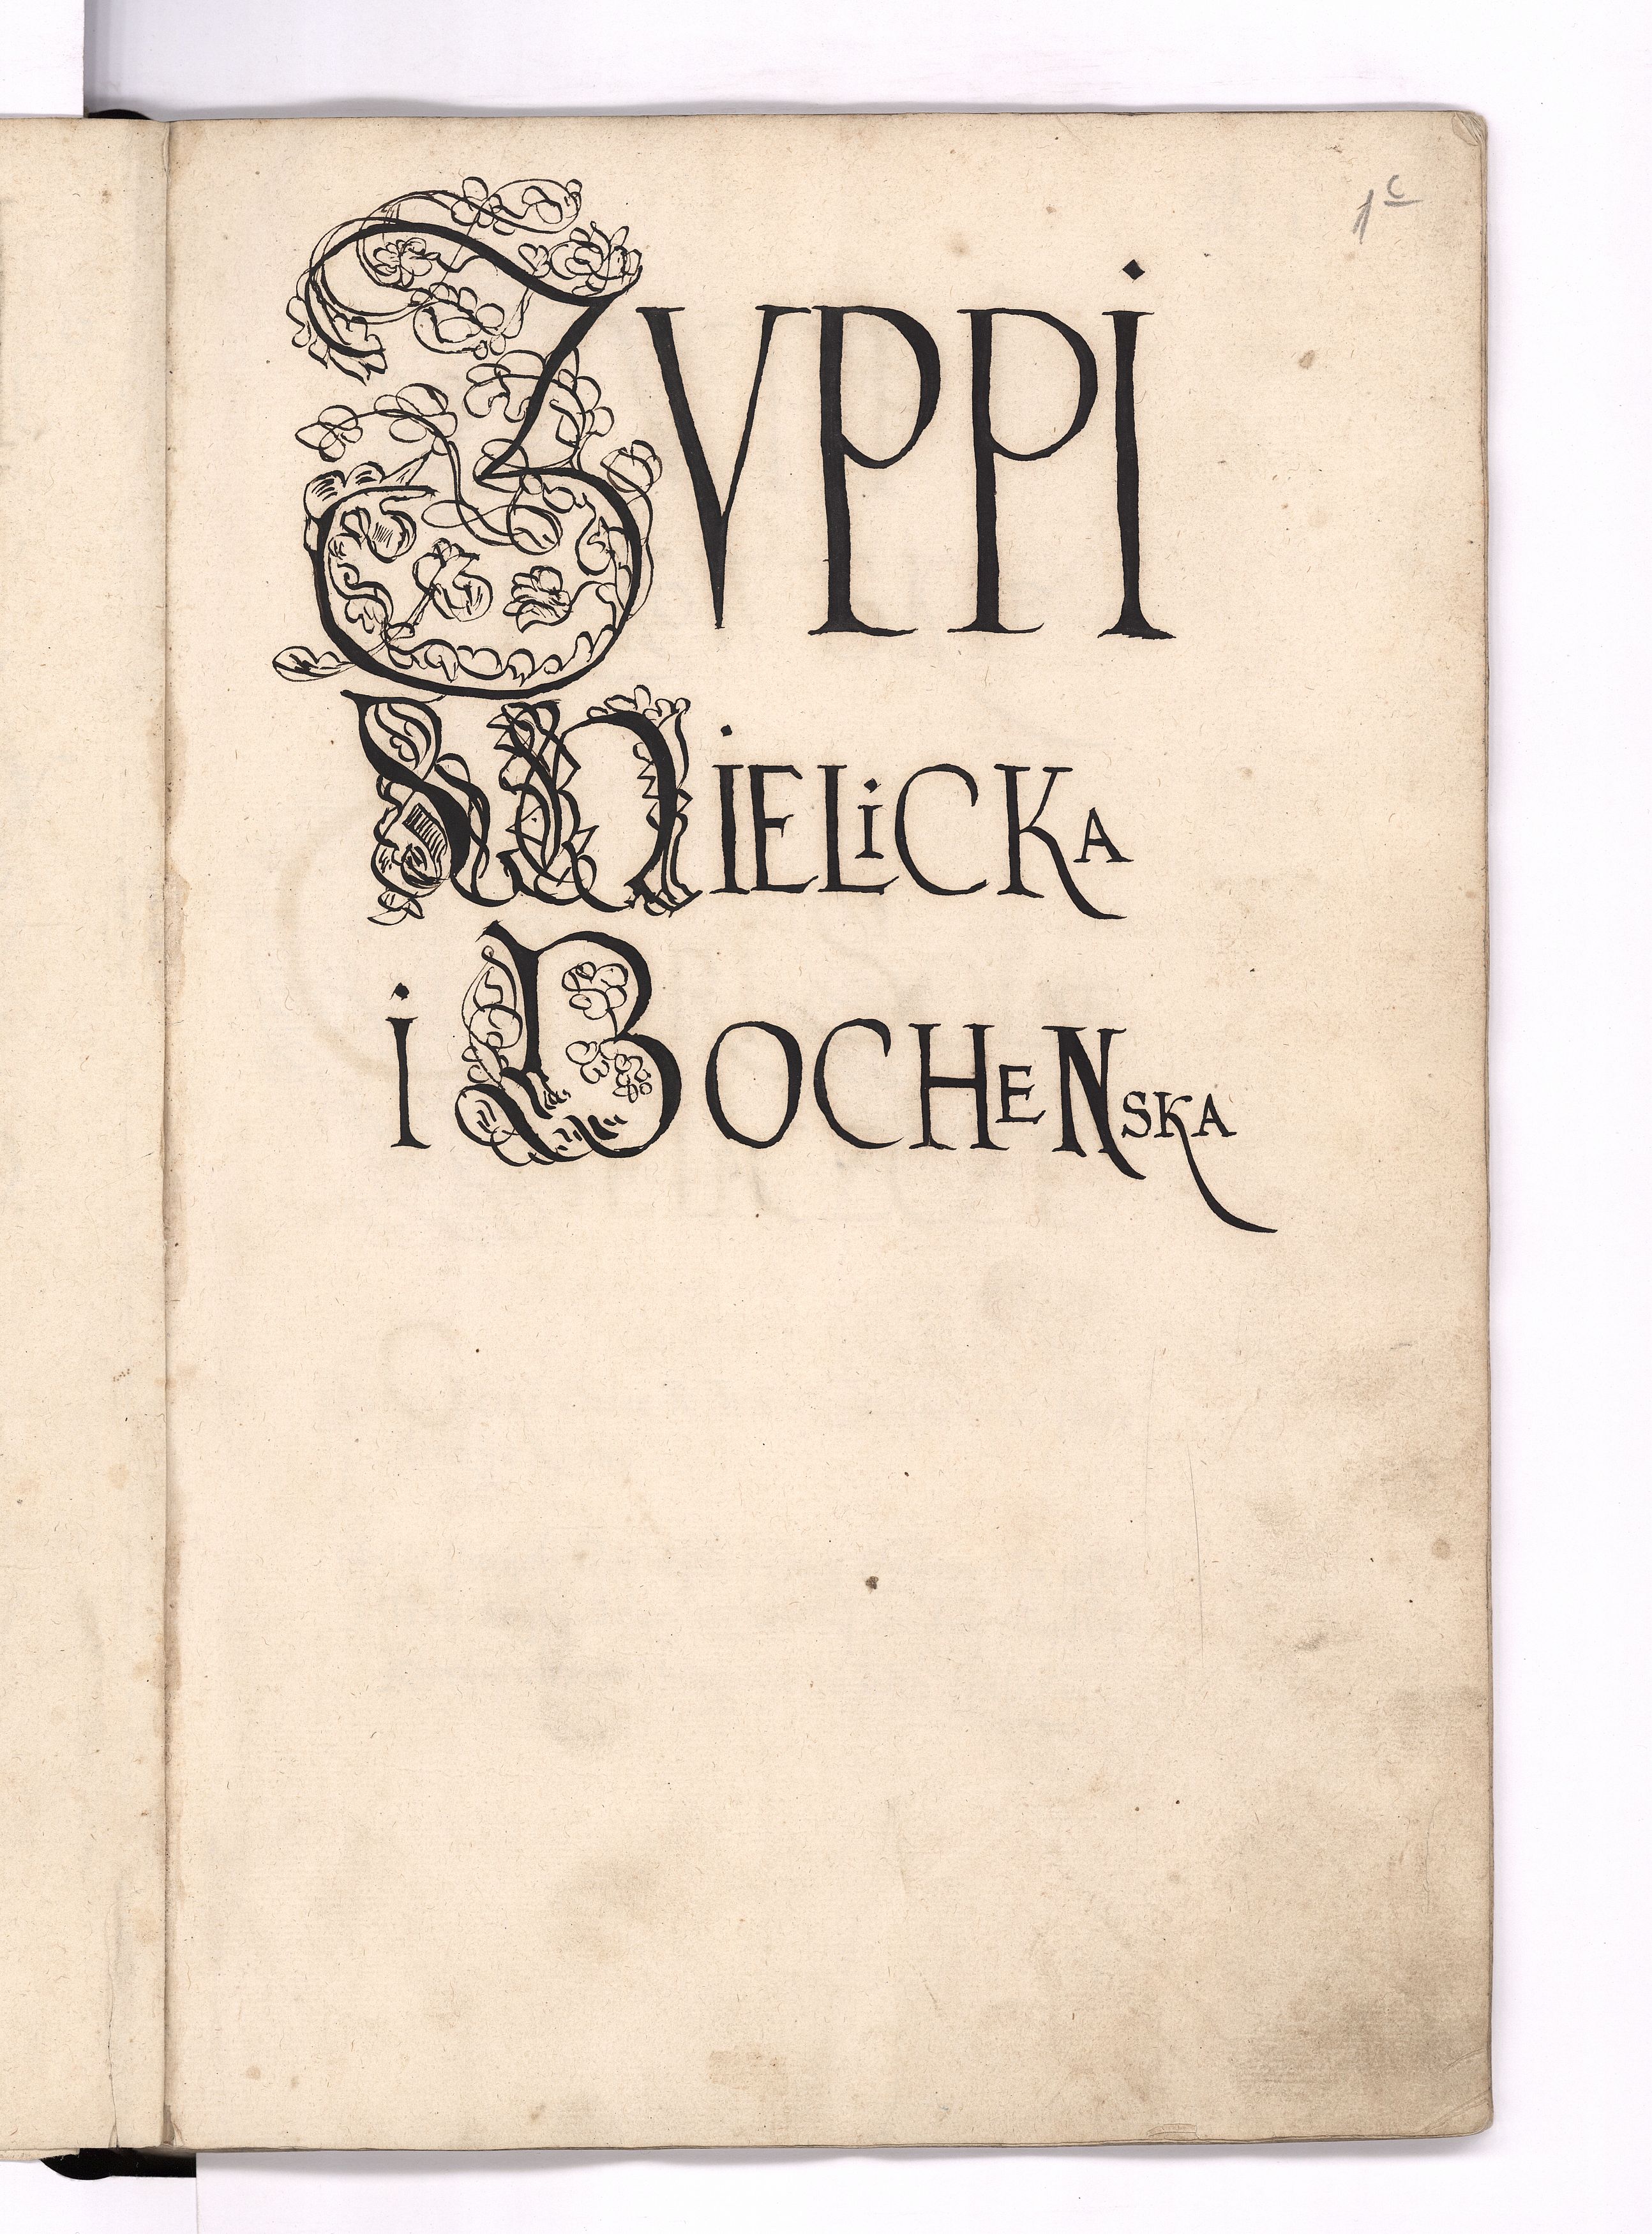 1c
ZVPPI
WIELiCKA
i BOCHENSKA